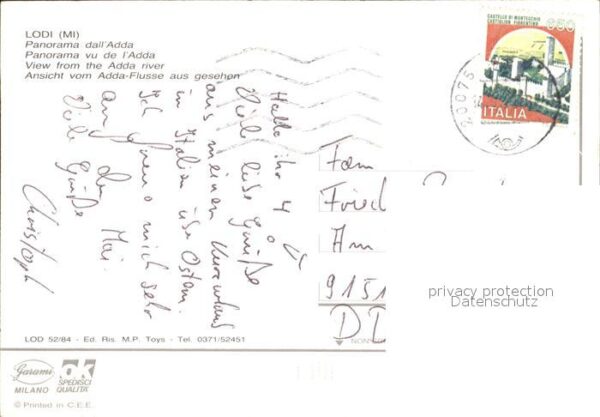 LODI (MI)
Panorama dall'Adda
Panorama vu de l'Adda
View from the Adda river
Ansicht vom Adda-Flusse aus gesehen
CASTELLO DI MONTECCHIO
CASTIGLION FIORENTINO
650
ITALIA
20075
Hallo ihr 4
Viele liebe Grüße
aus meinem Kurzurlaub
in Italien über Ostern.
Ich freue mich sehr
auf den Mai.
Viele Grüße
Christoph
Fam
Fried
Am
9151
D
privacy protection
Datenschutz
LOD 52/84 - Ed. Ris. M.P. Toys - Tel. 0371/52451
Garami
MILANO
OK
SPEDISCI
QUALITA'
© Printed in C.E.E.